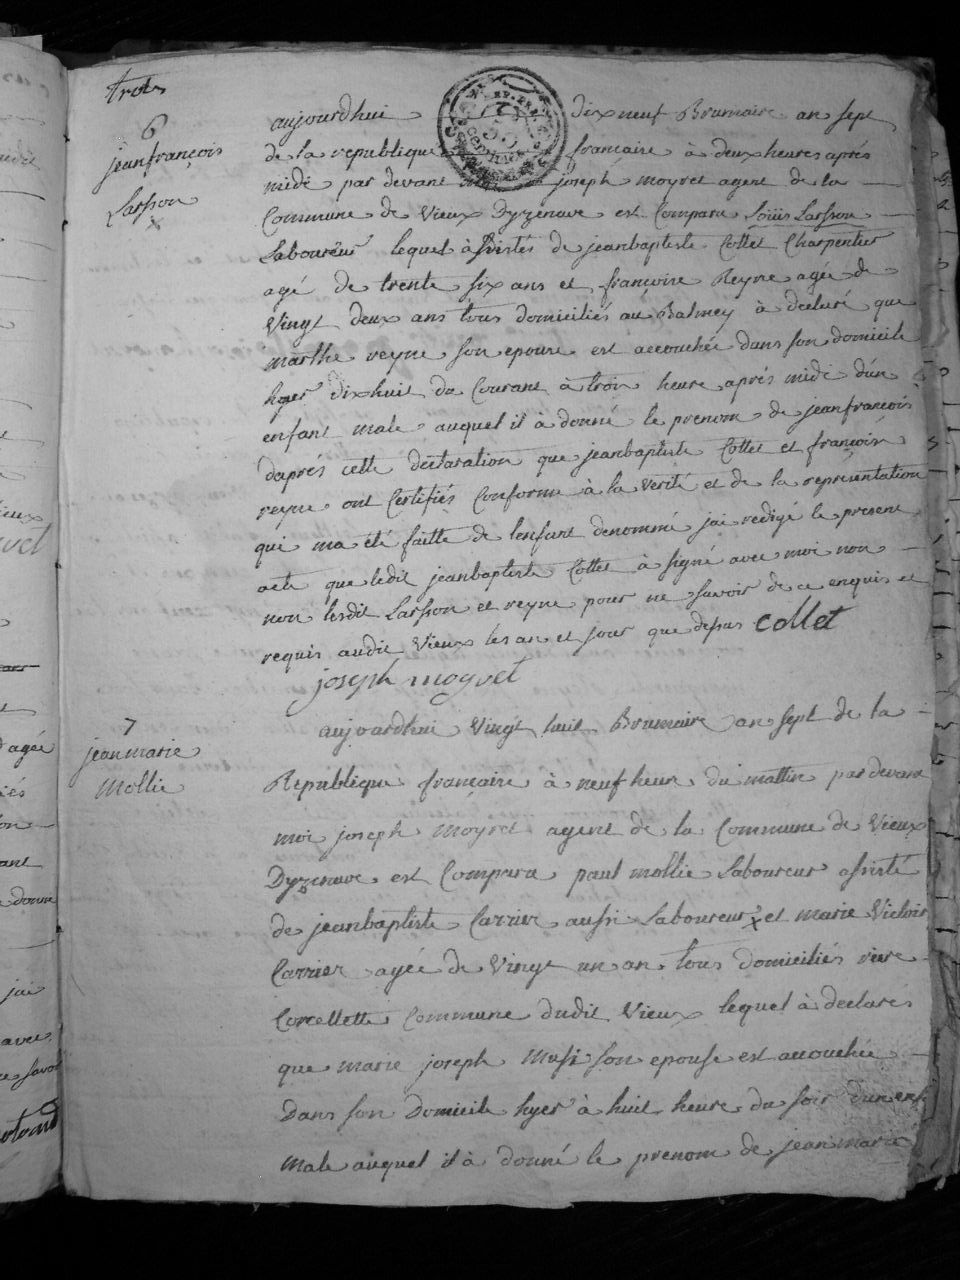 trois
6
jeanfrançois
Larsson
x
aujourdhui dix neuf Brumaire an sept
de la republique francaise à deux heures aprés
midi par devant moi joseph moyret agent de la
Commune de Vieux Dyzenave est Comparu Loüis Larsson
Laboureur lequel assistés de jeanbaptiste Collet Charpentier
agé de trente six ans et francoise Reyne agée de
Vingt deux ans tous domiciliés au Balmey à declaré que
marthe reyne son epouse est accouchée dans son domicile
hyer dixhuit du Courant à trois heure aprés midi dún
enfant male auquel il à donné le prenom de jeanfrancois
daprés cette declaration que jeanbaptiste Collet et francoise
reyne ont Certifiés Conforme à la Verité et de la representation
qui ma été faitte de lenfant denommé jai redigé le present
acte que ledit jeanbaptiste Collet à signé avec moi non
non lesdit Larsson et reyne pour ne savoir de ce enquis et
requis audit Vieux les an et jour que depus Collet
joseph moyret
7
jeanmarie
Mollie
aujourdhui Vingt huit Brumaire an sept de la
Republique francaise à neuf heure du mattin par devant
moi joseph Moyret agent de la Commune de Vieux
Dyzenave est Compara paul mollie Laboureur assisté
de jeanbaptiste Carrier aussi Laboureur x et marie Victoire
Carrier agée de Vingt un an tous domiciliés
Corcellette Commune dudit Vieux lequel à declarés
que marie joseph Musi son epouse est accouchée
Dans son Domicile hyer à huit heure du soir dun enf
Male auquel il à donné le prenom de jean marie